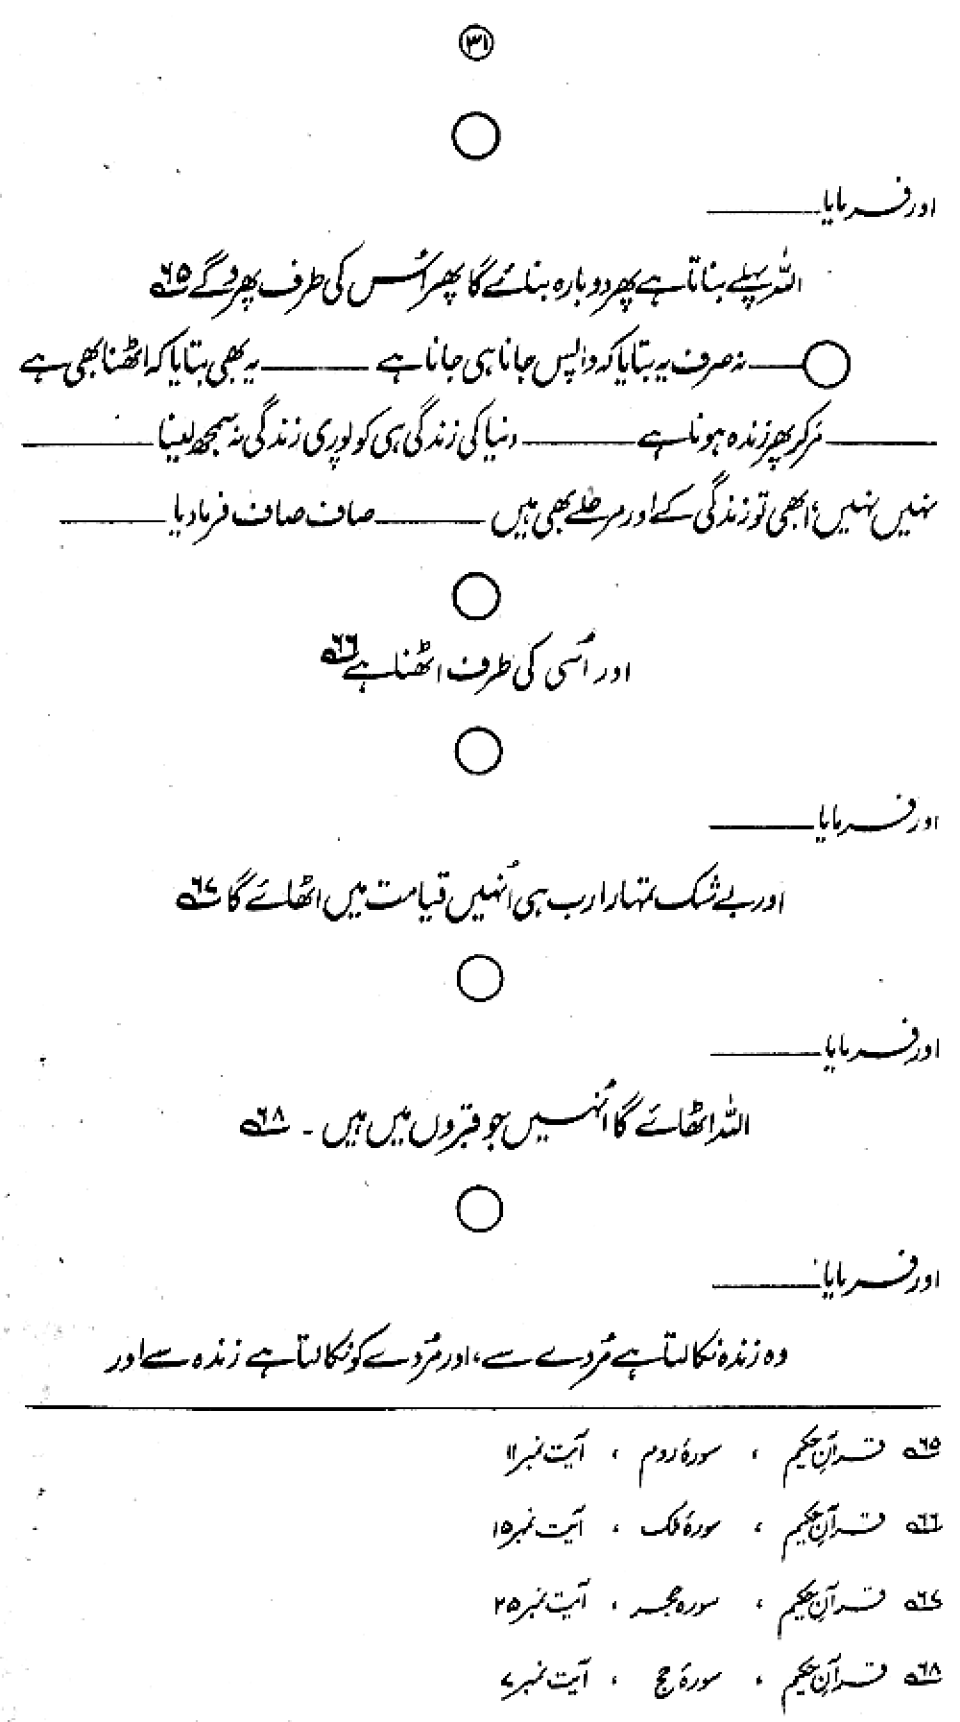 ۳۱
اور فرمایا ______
اللہ پہلے بناتا ہے پھر دوبارہ بنائے گا پھر اُس کی طرف پھروگے ۶۵
______ نہ صرف یہ بتایا کہ واپس جانا ہی جانا ہے ______ یہ بھی بتایا کہ اٹھنا بھی ہے
______ مَر کر پھر زندہ ہونا ہے ______ دنیا کی زندگی ہی کو پوری زندگی نہ سمجھ لینا ______
نہیں نہیں، ابھی تو زندگی کے اور مرحلے بھی ہیں ______ صاف صاف فرما دیا ______
اور اُسی کی طرف اٹھنا ہے ۶۶
اور فرمایا ______
اور بے شک تمہارا رب ہی اُنہیں قیامت میں اٹھائے گا ۶۷
اور فرمایا ______
اللہ اٹھائے گا اُنہیں جو قبروں میں ہیں ۔ ۶۸
اور فرمایا ______
وہ زندہ نکالتا ہے مُردے سے، اور مُردے کو نکالتا ہے زندہ سے اور
۶۵ قرآن حکیم ، سورۂ روم ، آیت نمبر ۱۱
۶۶ قرآن حکیم ، سورۂ ملک ، آیت نمبر ۱۵
۶۷ قرآن حکیم ، سورہ حجر ، آیت نمبر ۲۵
۶۸ قرآن حکیم ، سورۂ حج ، آیت نمبر ۷